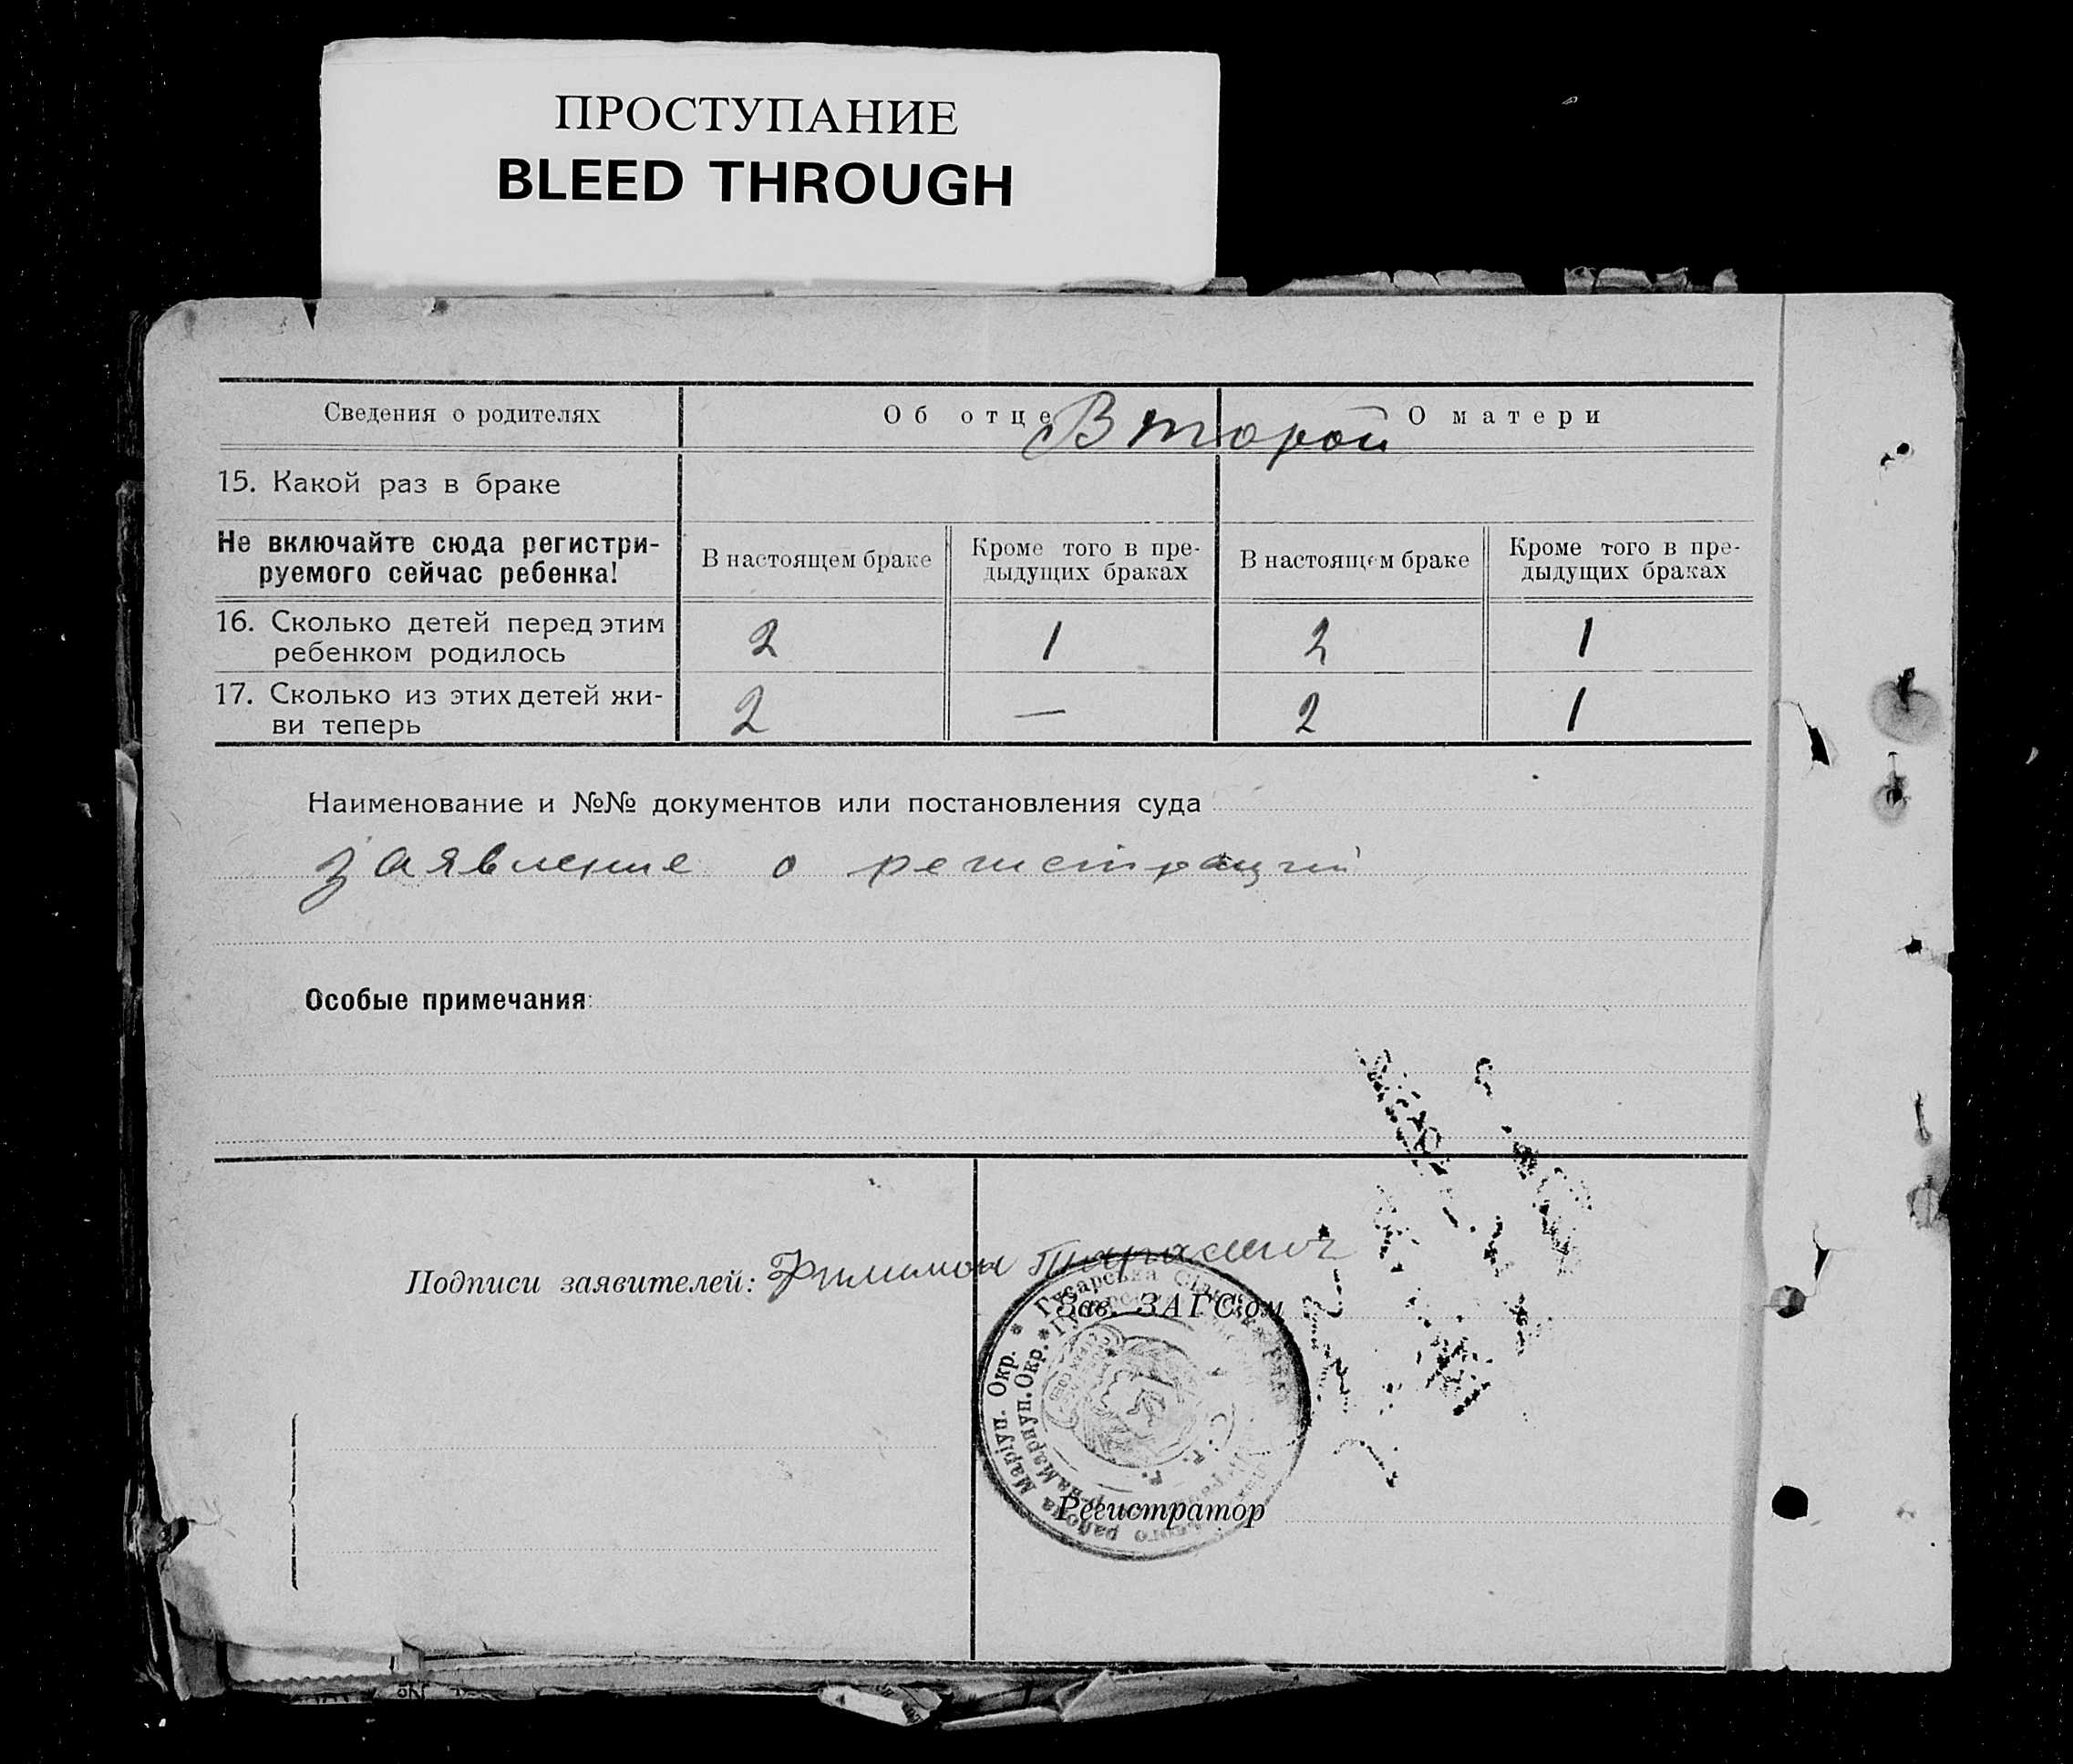 ПРОСТУПАНИЕ
BLEED THROUGH
Сведения о родителях
Об отце
О матери
Второй
15. Какой раз в браке
Не включайте сюда регистри-
руемого сейчас ребенка!
В настоящем браке
Кроме того в пре-
дыдущих браках
В настоящем браке
Кроме того в пре-
дыдущих браках
16. Сколько детей перед этим
ребенком родилось
2 1 2 1
17. Сколько из этих детей жи-
ви теперь
2 — 2 1
Наименование и №№ документов или постановления суда
заявление о регистраций
Особые примечания:
Подписи заявителей: Филимон
Зав. ЗАГС'ом
Гусарська
района Маріуп. Окр.
Регистратор